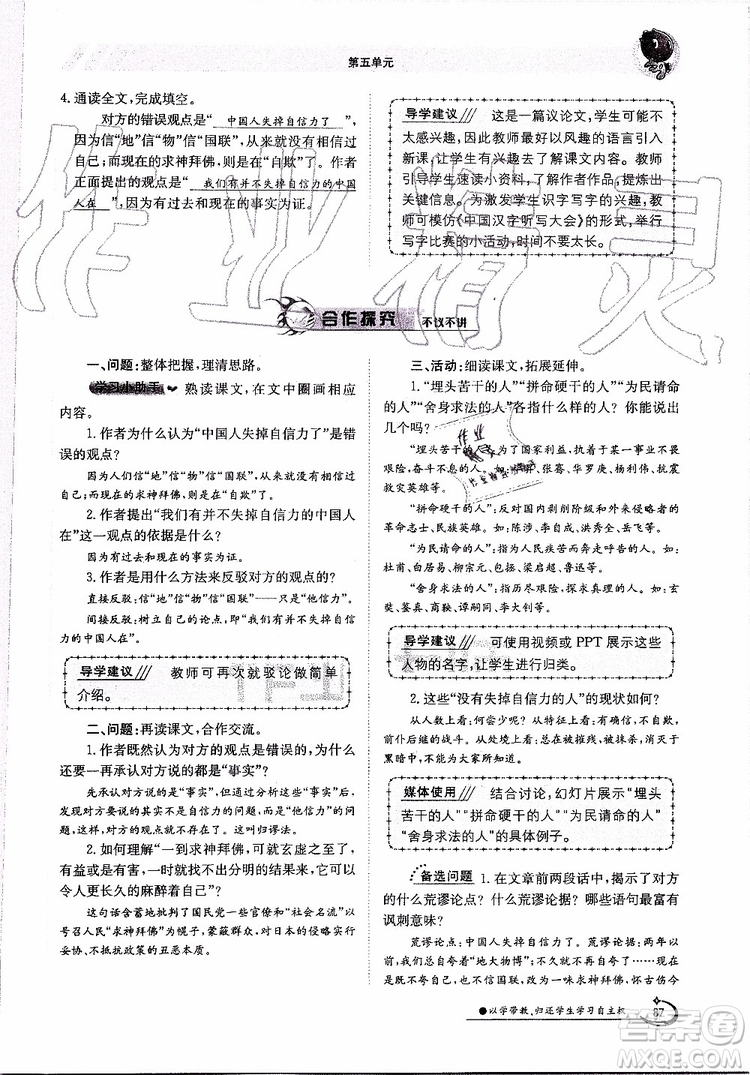 第五单元
4. 通读全文,完成填空。
对方的错误观点是“ 中国人失掉自信力了 ”,
因为信“地”信“物”信“国联”,就是没有相信过
自己;而现在的求神拜佛,则是在“自欺”了。作者
正面提出的观点是“ 我们有并不失掉自信力的中国
人在 ”,因为有过去和现在的事实为证。
导学建议 这是一篇议论文,学生可能不
太感兴趣,因此教师最好以风趣的语言引入
新课,让学生有兴趣去了解课文内容。教师
可引导学生速读小资料,了解作者作品,提炼出
关键信息。为激发学生识字写字的兴趣,教
师可模仿《中国汉字听写大会》的形式,举行
写字比赛的小活动,时间不要太长。
合作探究 不议不讲
一、问题:整体把握,理清思路。
学习小助手 熟读课文,在文中圈画相应
内容。
1. 作者为什么认为“中国人失掉自信力了”是错
误的观点?
因为人们信“地”信“物”信“国联”,就是没有相信过
自己;而现在的求神拜佛,则是在“自欺”了。
2. 作者提出“我们有并不失掉自信力的中国人
在”这一观点的依据是什么?
因为有过去和现在的事实为证。
3. 作者是用什么方法来反驳对方的观点的?
直接反驳:信“地”信“物”信“国联”——只是“他信”。
间接反驳:树立自己的论点,即“我们有并不失掉自信力的
中国人在”。
导学建议 教师可再次就驳论做简单
介绍。
二、问题:再读课文,合作交流。
1. 作者既然认为对方的观点是错误的,为什么
还要一再承认对方说的都是“事实”?
先承认对方说的这些“事实”,是为了后面反驳这些“事
实”不是“自信力”的问题,而是“他信力”的问题,以及现在
发展着“自欺力”的问题。这叫归谬法。
2. 如何理解“一到求神拜佛,可就玄虚之至了,
有益或是有害,一时就找不出分明的结果来,它可以
令人更长久的麻醉着自己”?
这句话含蓄地批判了国民党一些官僚和“社会名流”以
号召人民“求神拜佛”为幌子,蒙蔽群众,对日本的侵略实行
妥协、不抵抗政策的丑恶本质。
三、活动:细读课文,拓展延伸。
1. “埋头苦干的人”“拼命硬干的人”“为民请命
的人”“舍身求法的人”各指什么样的人?你能说出
几个吗?
“埋头苦干的人”:为了国家利益,执着于某一事业不畏
艰险,奋斗不息的人。如大禹、张骞、华罗庚、杨利伟、抗震
救灾英雄等。
“拼命硬干的人”:反对国内剥削阶级和外来侵略者的
革命志士、民族英雄。如:陈涉、李自成、洪秀全、岳飞等。
“为民请命的人”:为人民疾苦而奔走呼告的人。如:
杜甫、白居易、关汉卿、包拯、梁启超、鲁迅等。
“舍身求法的人”:指历尽艰险,探求真理的人。如:玄
奘、鉴真、商鞅、谭嗣同、李大钊等。
导学建议 可使用视频或 PPT 展示这些
人物的名字,让学生进行归类。
2. 这些“没有失掉自信力的人”的现状如何?
从人数上看:何尝少呢?从特征上看:有确信,不自欺,
前仆后继的战斗。从处境上看:总在被摧残,被抹杀,消灭于
黑暗中,不能为大家所知道。
媒体使用 结合讨论,幻灯片展示“埋头
苦干的人”“拼命硬干的人”“为民请命的人”
“舍身求法的人”的具体例子。
备选问题 1. 在文章前两段话中,找出了对方
的什么荒谬论点?什么荒谬论据?哪些语句最有
讽刺意味?
荒谬论点:中国人失掉自信力了。荒谬论据:两年以
前,我们总自夸着“地大物博”;不久就不再自夸了,只希望
着国联,现在是既不夸自己,也不信国联,改为一味求神拜佛,怀古伤今
以学带教,归还学生学习自主权
87
作业精灵
答案圈
MXQE.COM